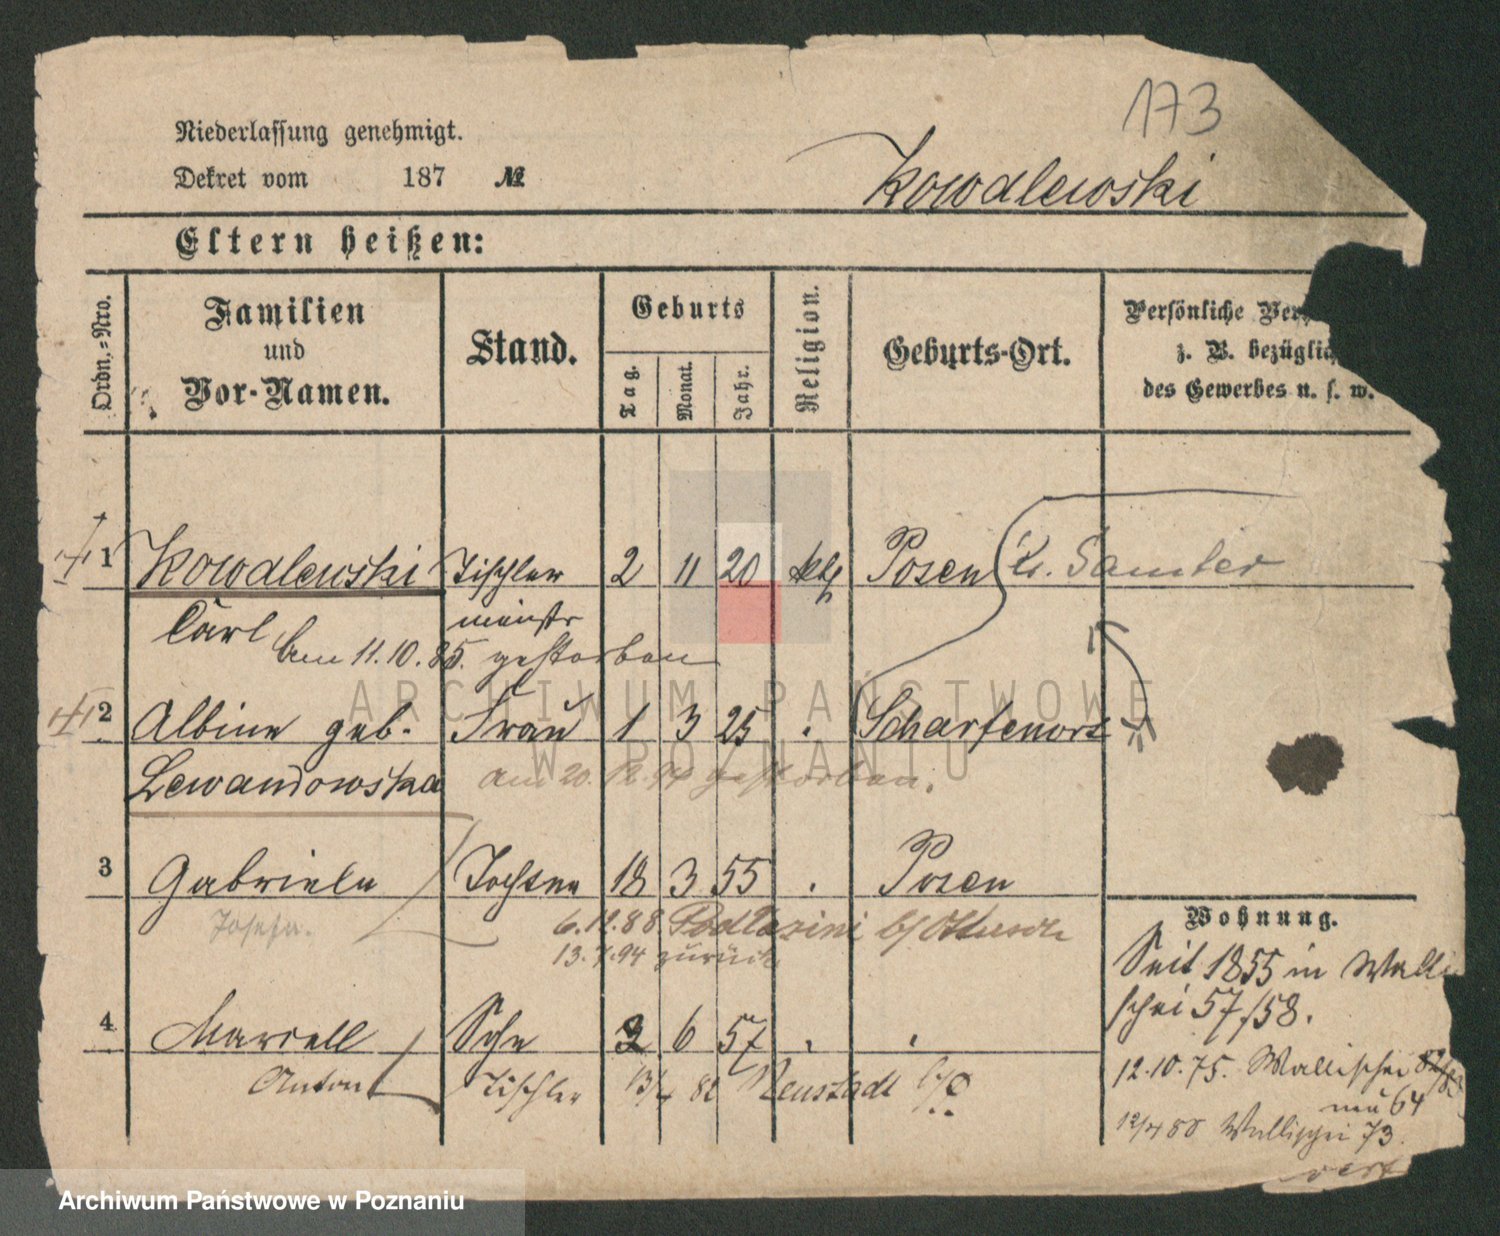 173
Niederlassung genehmigt.
Dekret vom 187 №
Kowalewski
Eltern heißen:
Ordn.-Nro.
Familien
und
Vor-Namen.
Stand.
Geburts
Tag.
Monat.
Jahr.
Religion.
Geburts-Ort.
Persönliche Ver
z. B. bezüglich
des Gewerbes u. s. w.
1 Kowalewski Tischler 2 11 20 kth Posen Kr. Samter
Carl meister
am 11.10.85. gestorben
2 Albine geb. Frau 1 3 25 Scharfenort
Lewandowska am 20.12.94 gestorben.
3 Gabriele Tochter 18 3 55 . Posen
Josefa. 6.12.88 b/
13.7.94 zurück
Wohnung.
Seit 1855 in Walli
schei 57/58.
4 Marcell Sohn 2 6 57 . .
Anton Tischler 13/4 82 Neustadt
12.10.75. Wallischei
64
12/4 88 Wallischei 73.
ARCHIWUM PAŃSTWOWE
W POZNANIU
Archiwum Państwowe w Poznaniu